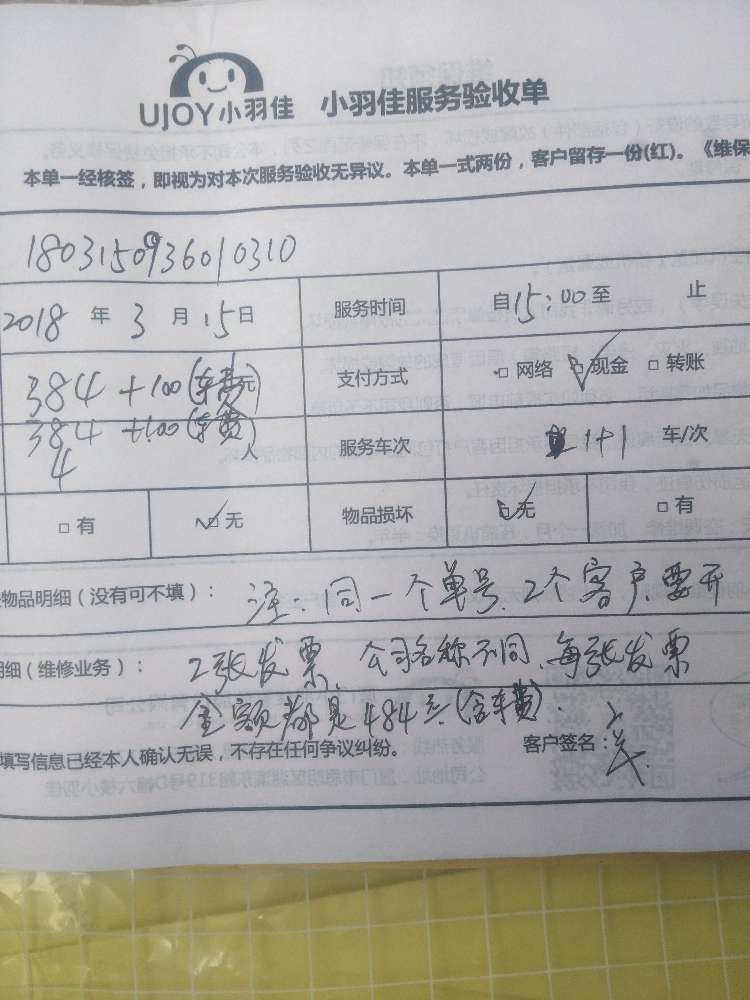 UJOY小羽佳 小羽佳服务验收单
本单一经核签，即视为对本次服务验收无异议。本单一式两份，客户留存一份(红)。《维保
1803150936010310
2018 年 3 月 15日 服务时间 自15:00至 止
384 +100(车费)元 支付方式 □ 网络 ☑ 现金 □ 转账
384 +100(车费)
4 人 服务车次 1+1 车/次
□ 有 ☑ 无 物品损坏 ☑ 无 □ 有
物品明细（没有可不填）： 注：同一个单号.2个客户.要开
明细（维修业务）： 2张发票.公司名称不同.每张发票
金额都是484元(含车费).
填写信息已经本人确认无误，不存在任何争议纠纷。 客户签名：